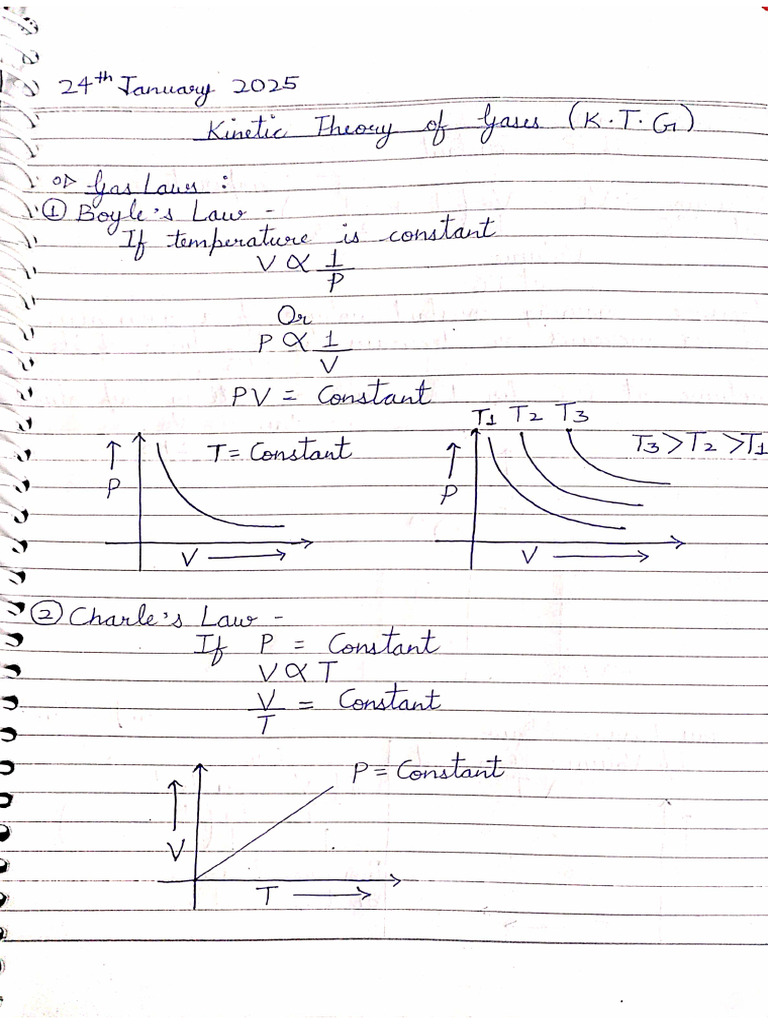 24th January 2025
Kinetic Theory of Gases (K.T.G)
Gas Laws :
① Boyle's Law -
If temperature is constant
V ∝ 1/P
Or
P ∝ 1/V
PV = Constant
T1 T2 T3
T = Constant
T3 > T2 > T1
P
P
V
V
② Charle's Law -
If P = Constant
V ∝ T
V/T = Constant
P = Constant
V
T